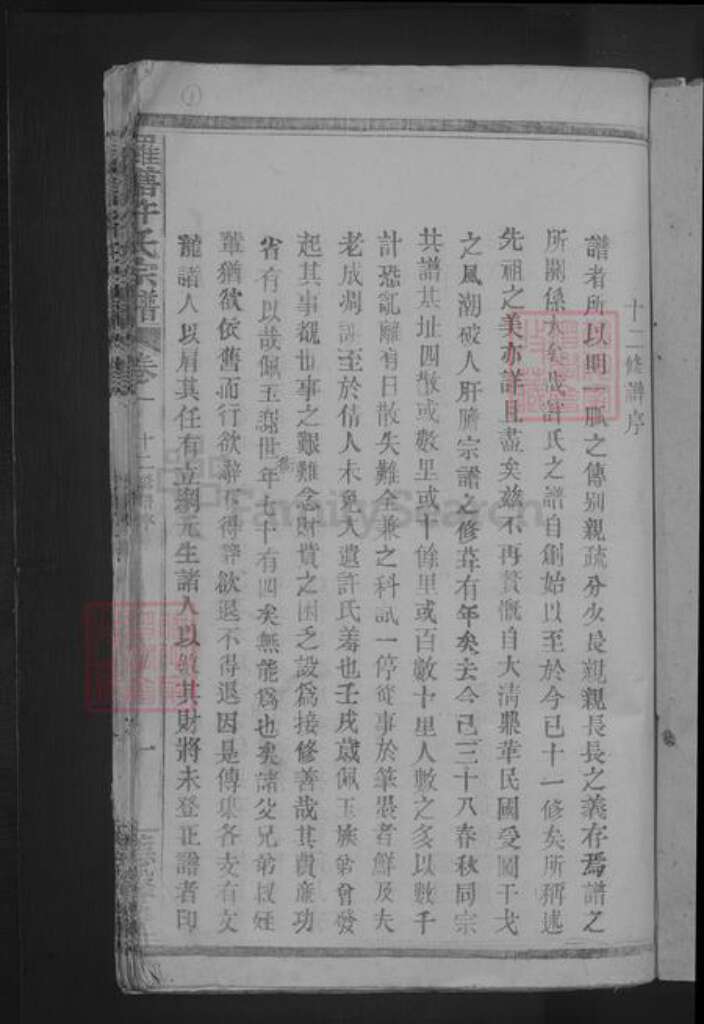 十二修譜序
譜者所以明一脈之傳别親疏分少長親親長長之義存焉譜之
所關係大矣哉許氏之譜自創始以至於今已十一修矣所稱述
先祖之美亦詳且盡矣茲不再贅慨自大清鼎革民國受圖干戈
之風潮破人肝膽宗譜之修葺有年矣去今已三十八春秋同宗
共譜基址四散或數里或十餘里或百數十里人數之多以數千
計恐亂離有日散失難全兼之科試一停從事於筆墨者鮮及夫
老成凋謝至於倩人未免大遺許氏羞也壬戌歲佩玉族弟曾發
起其事覩世事之艱難念財貲之困乏設爲接修善哉其費廉功
省有以哉佩玉謝世年七十有四矣無能爲也矣諸父兄弟叔姪
輩猶欲依舊而行欲辭不得辭欲退不得退因是傳集各支有文
諸人以肩其任有立綱元生諸人以斂其財將未登正譜者印
羅塘許氏宗譜 卷一 十二修譜序 一